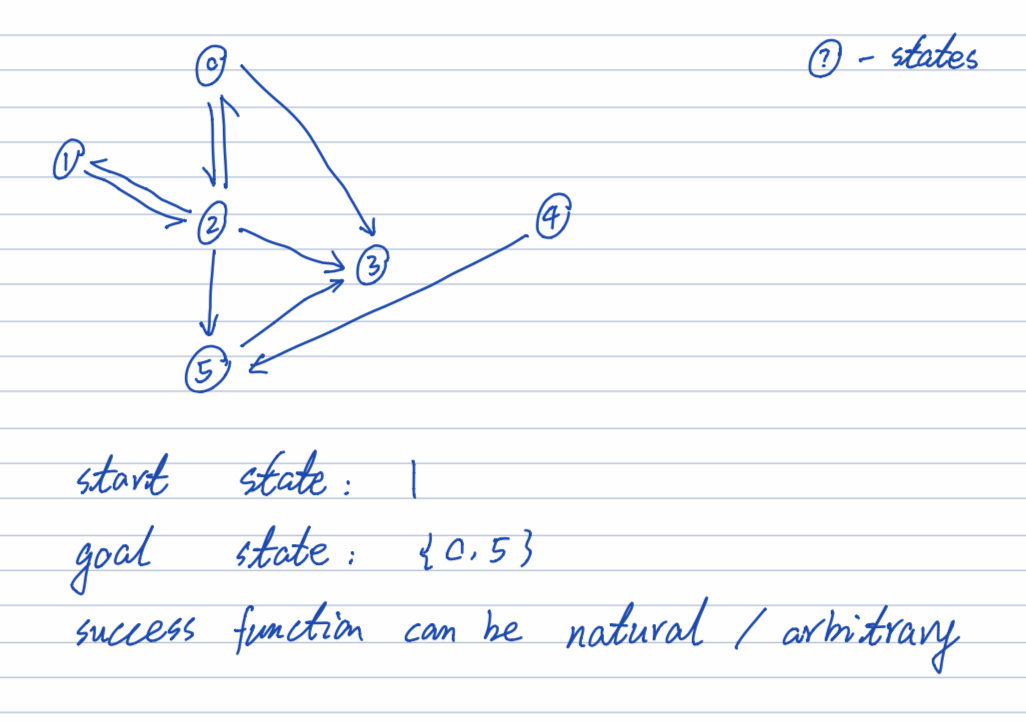 0
? - states
1
2
4
3
5
start state: 1
goal state: {0,5}
success function can be natural / arbitrary